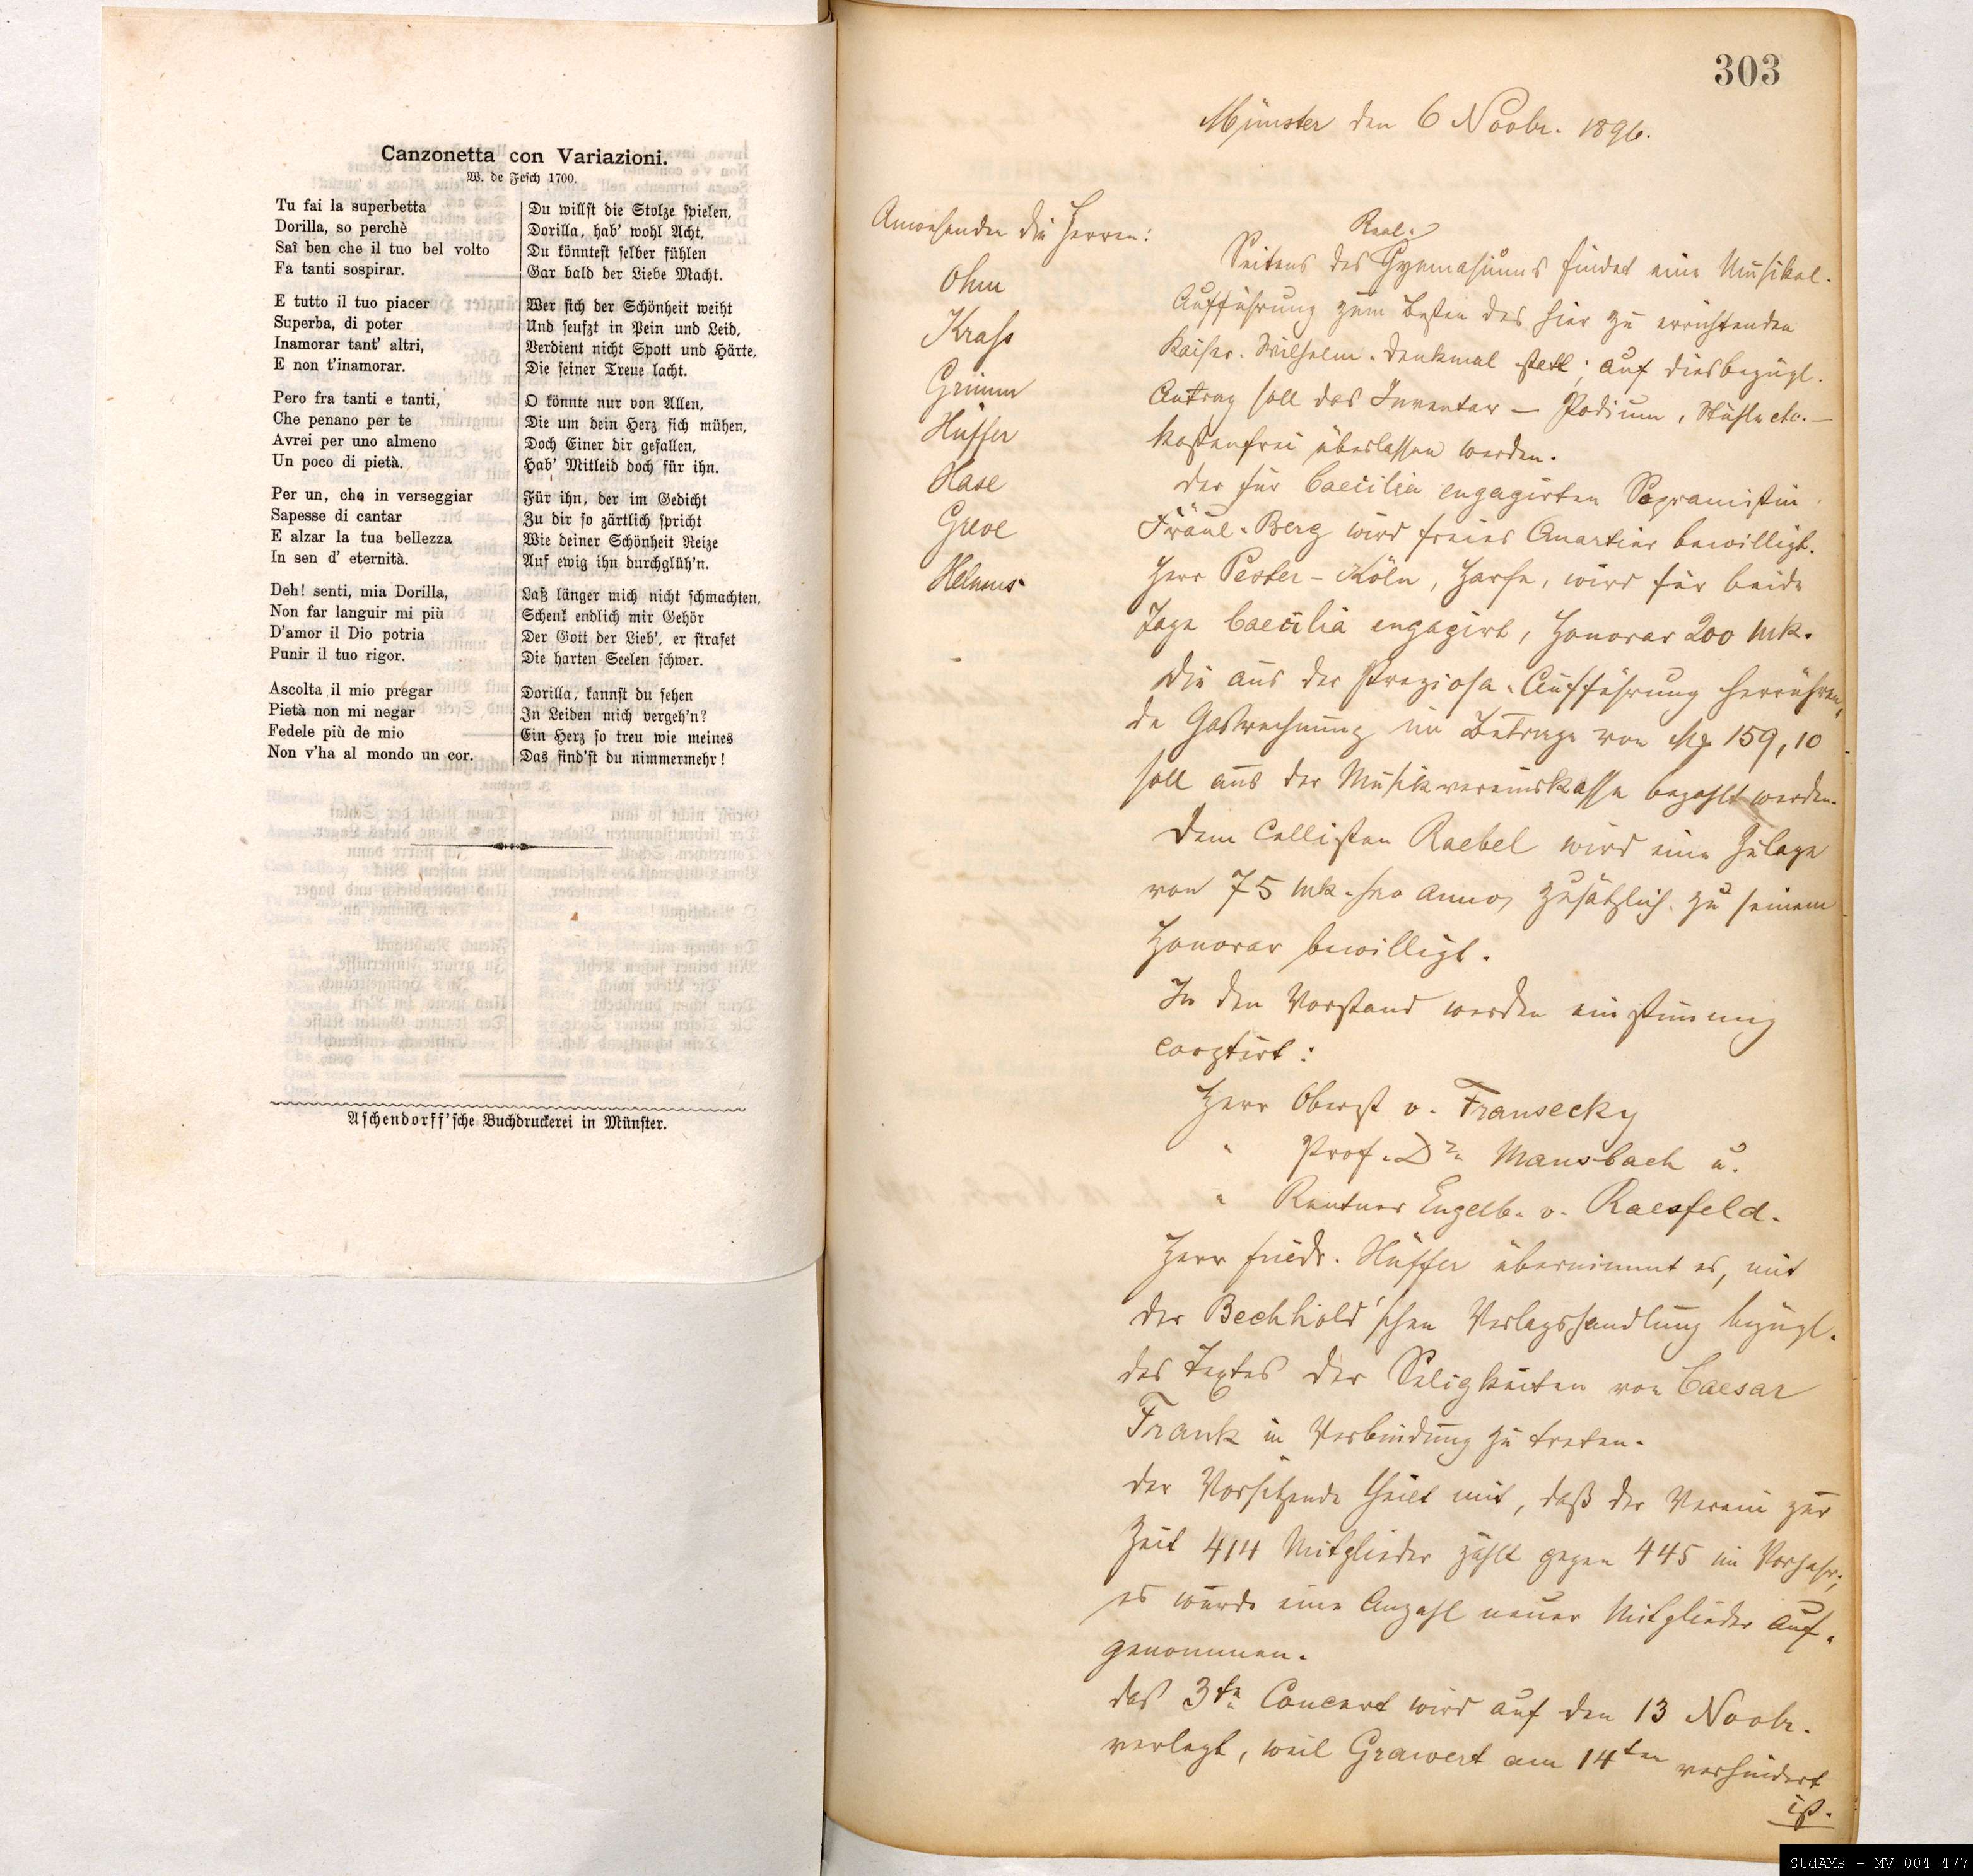 Canzonetta con Variazioni.
W. de Fesch 1700.
Tu fai la superbetta
Dorilla, so perchè
Sai ben che il tuo bel volto
Fa tanti sospirar.
E tutto il tuo piacer
Superba, di poter
Inamorar tant' altri,
E non t'inamorar.
Pero fra tanti e tanti,
Che penano per te
Avrei per uno almeno
Un poco di pietà.
Per un, che in verseggiar
Sapesse di cantar
E alzar la tua bellezza
In sen d' eternità.
Deh! senti, mia Dorilla,
Non far languir mi più
D'amor il Dio potria
Punir il tuo rigor.
Ascolta il mio pregar
Pietà non mi negar
Fedele più de mio
Non v'ha al mondo un cor.
Du willst die Stolze spielen,
Dorilla, hab' wohl Acht,
Du könntest selber fühlen
Gar bald der Liebe Macht.
Wer sich der Schönheit weiht
Und seufzt in Pein und Leid,
Verdient nicht Spott und Härte,
Die seiner Treue lacht.
O könnte nur von Allen,
Die um dein Herz sich mühen,
Doch Einer dir gefallen,
Hab' Mitleid doch für ihn.
Für ihn, der im Gedicht
Zu dir so zärtlich spricht
Wie deiner Schönheit Reize
Auf ewig ihn durchglüh'n.
Laß länger mich nicht schmachten,
Schenk endlich mir Gehör
Der Gott der Lieb', er strafet
Die harten Seelen schwer.
Dorilla, kannst du sehen
In Leiden mich vergeh'n?
Ein Herz so treu wie meines
Das find'st du nimmermehr!
Aschendorff'sche Buchdruckerei in Münster.
303
Münster den 6 Novbr. 1896.
Anwesenden die Herren:
Ohm
Krass
Grimm
Hüffer
Hase
Greve
Helmus
Real-
Seitens des Gymnasiums findet eine Musikal.
Aufführung zum Besten des hier zu errichtenden
Kaiser-Wilhelm-Denkmal statt; auf diesbezügl.
Antrag soll das Inventar – Podium, Stühle etc. –
kostenfrei überlassen werden.
Der für Caecilia engagirten Sopranistin
Fräul. Berg wird freies Quartier bewilligt.
Herr Pester – Köln, Harfe, wird für beide
Tage Caecilia engagirt, Honorar 200 Mk.
Die aus der Preziosa-Aufführung herrühren-
de Gasrechnung im Betrage von Mk 159,10
soll aus der Musikvereinskasse bezahlt werden.
Dem Cellisten Raebel wird eine Zulage
von 75 Mk. pro anno, zusätzlich zu seinem
Honorar bewilligt.
In den Vorstand werden einstimmig
cooptirt:
Herr Oberst v. Fransecky
" Prof. Dr. Mausbach u.
" Rentner Engelb. v. Raesfeld.
Herr Friedr. Hüffer übernimmt es, mit
der Bechhold'schen Verlagshandlung bezügl.
des Textes der Seligkeiten von Caesar
Frank in Verbindung zu treten.
Der Vorsitzende theilt mit, daß der Verein zur
Zeit 414 Mitglieder zählt gegen 445 im Vorjahr;
es wurde eine Anzahl neuer Mitglieder auf-
genommen.
Das 3te Concert wird auf den 13 Novbr.
verlegt, weil Grawert am 14ten verhindert
ist.
StdAMs - MV_004_477